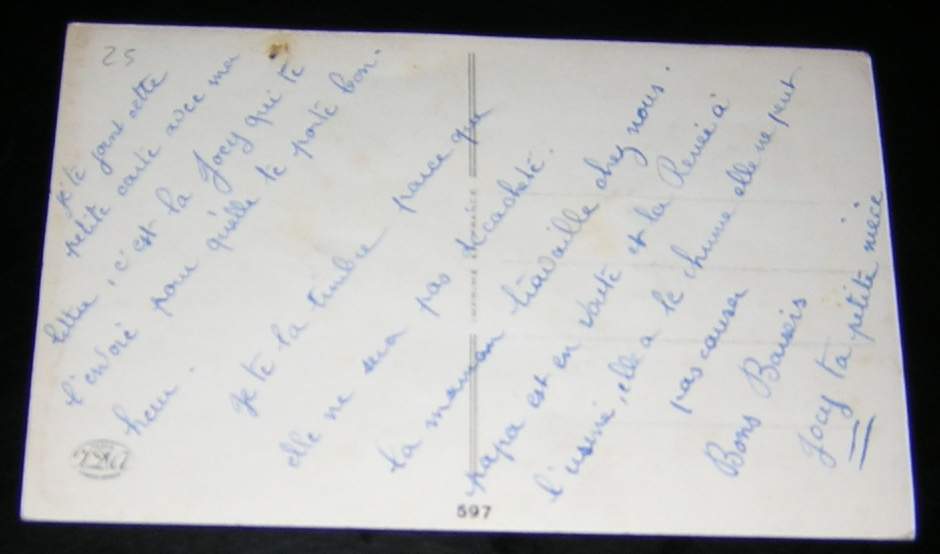 25
Je te joint cette
petite carte avec ma
lettre, c'est la Jocy qui te
l'envoie pour quelle te porte bon-
heur.
Je te la timbre parce que
elle ne sera pas décacheté.
la maman travaille chez nous.
papa est en route et la Renée à
l'usine, elle a le rhume elle ne peut
pas causer
Bons Baisers
Jocy ta petite nièce
597